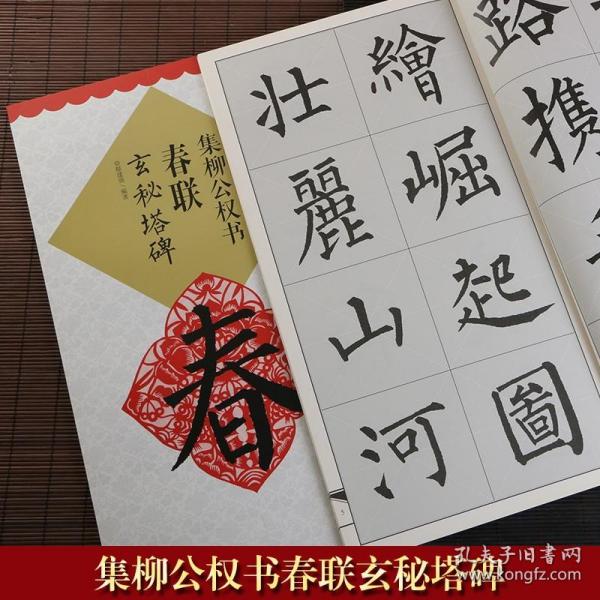 集柳公权书
春联
玄秘塔碑
春
路攜
繪崛起圖
壮麗山河
5
集柳公权书春联玄秘塔碑
孔夫子旧书网
www.kongfz.com